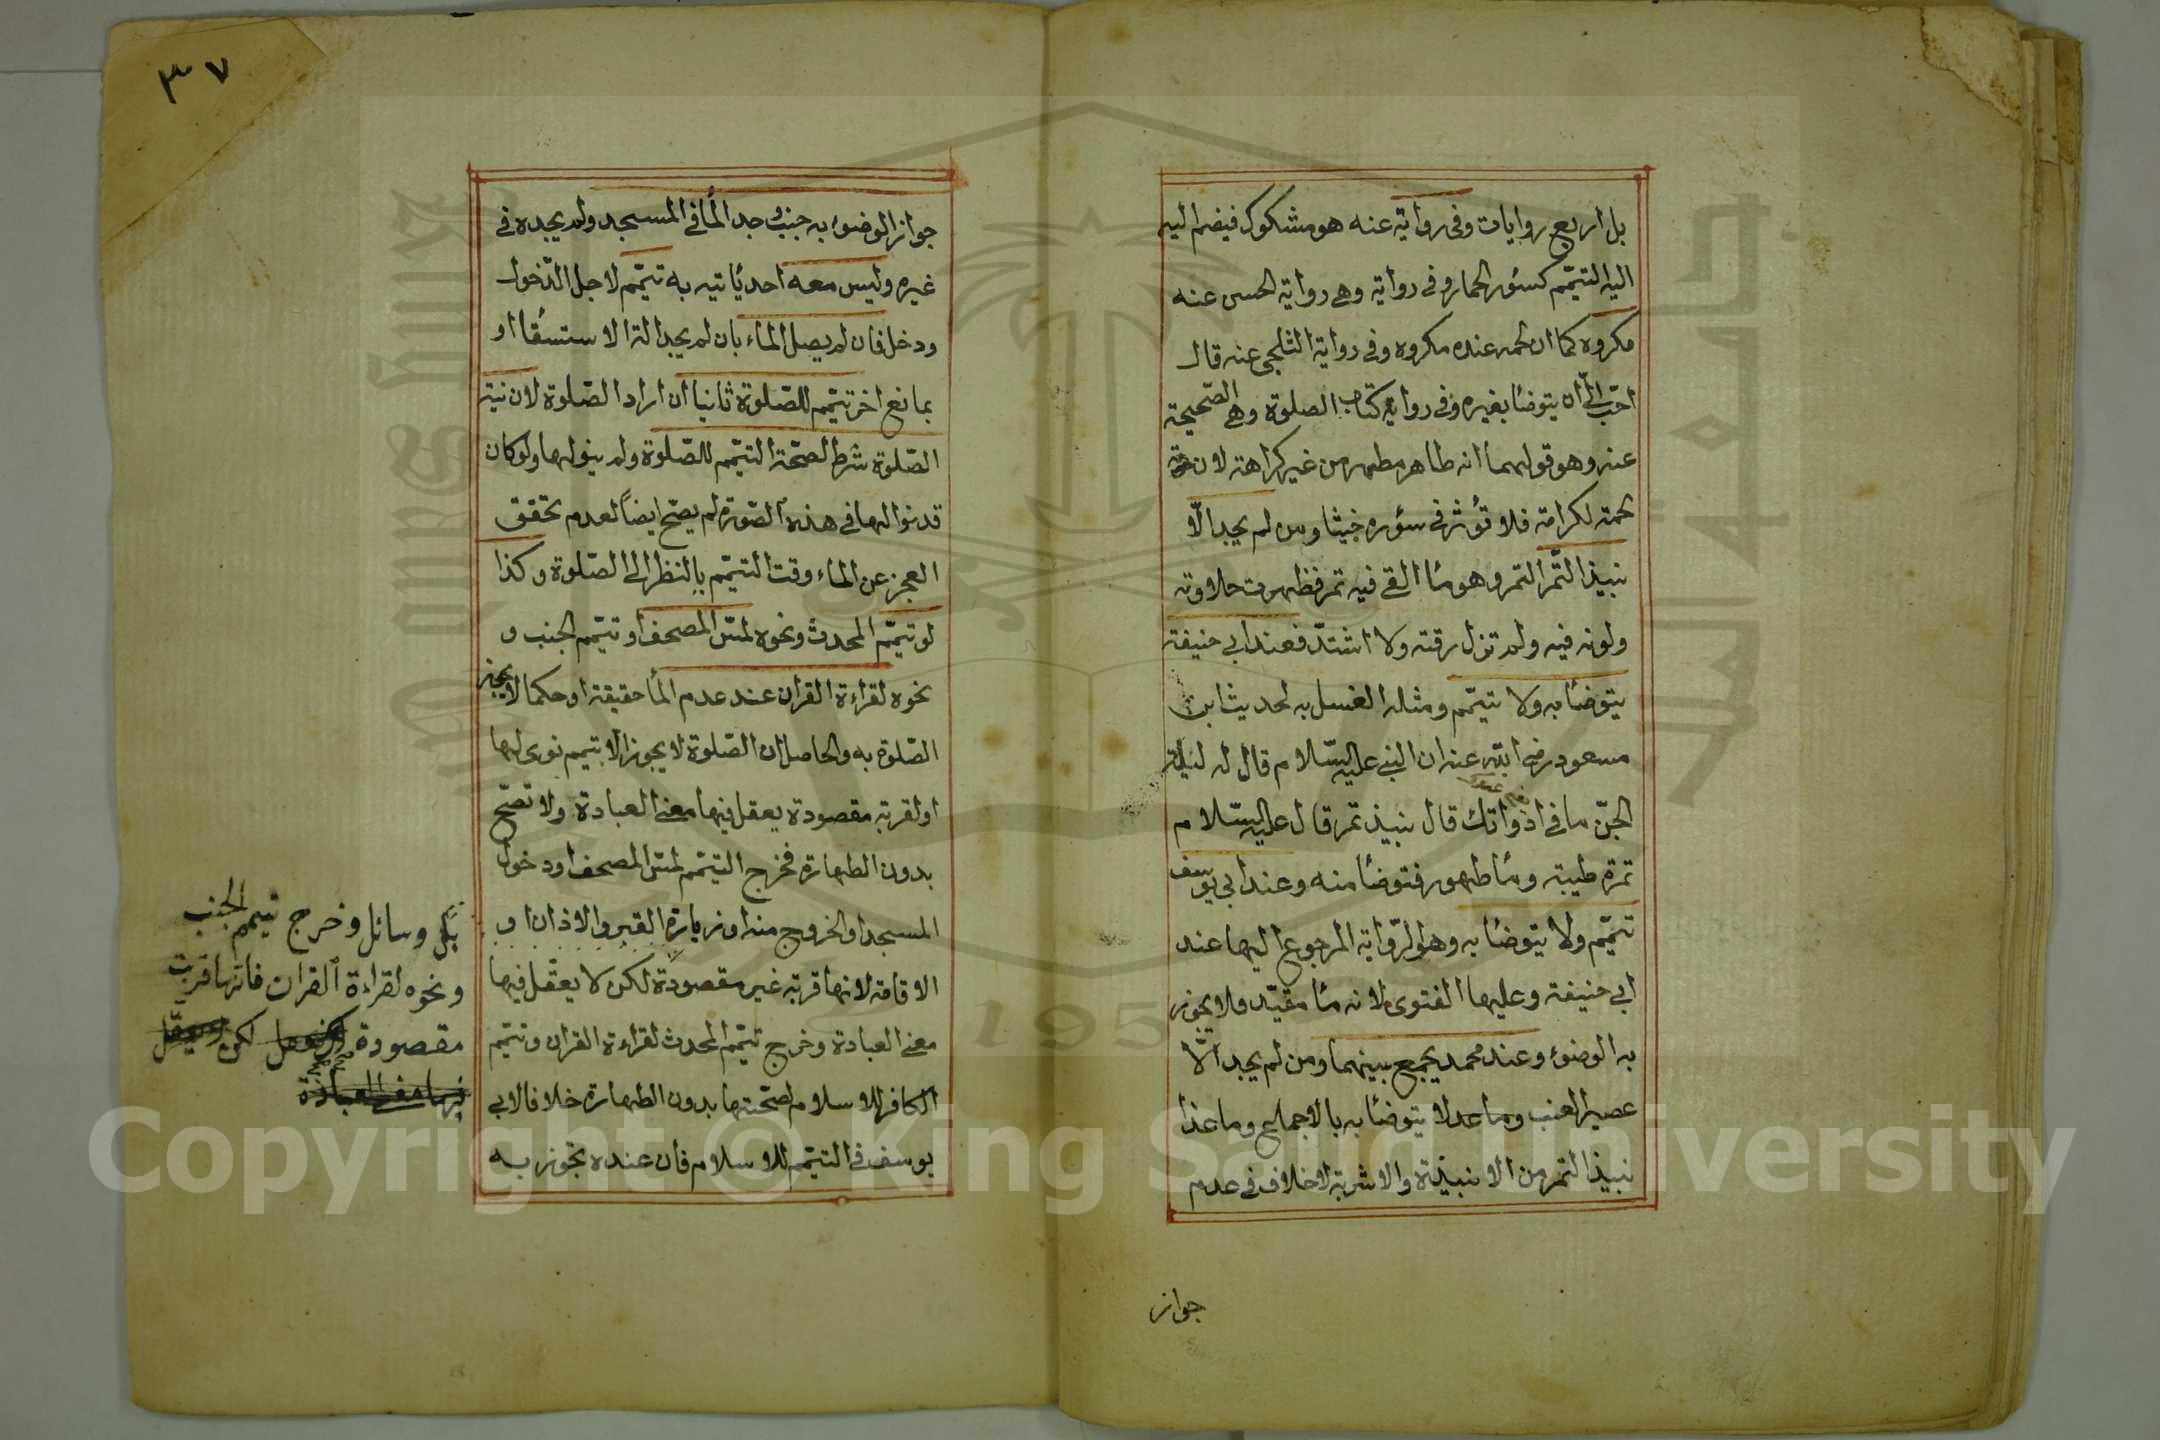 بل اربع روايات وفى رواية عنه هو مشكوك فيضم اليه
اليه التيمّم كسؤر الحمار وفى رواية وهى رواية الحسن عنه
مكروه كما ان لحمه عنده مكروه وفى رواية الثلجى عنه قال
احبّ الىّ ان يتوضأ بغيره وفى رواية كتاب الصلوة وهى الصّحيحة
عنه وهو قولهما انه طاهر مطهر من غير كراهة لان حرمة
لحمه لكرامة فلا تؤثر فى سؤره خبثا ومن لم يجد الّا
نبيذ التّمر التمر وهو ماء القى فيه تمر فظهرت حلاوته
ولونه فيه ولم تزل رقته ولا اشتدّ فعند ابى حنيفة
يتوضأ به ولا تيمّم ومثله الغسل به لحديث ابن
مسعود رضى الله عنه ان النبى عليه السّلام قال له ليلة
الجنّ ما فى اذواتك قال نبيذ تمر قال عليه السّلام
تمرة طيبة وماء طهور فتوضأ منه وعند ابى يوسف
تيمّم ولا يتوضأ به وهو الرّواية المرجوع اليها عند
ابى حنيفة وعليها الفتوى لانه ماء مقيّد فلا يجوز
به الوضوء وعند محمد يجمع بينهما ومن لم يجد الّا
عصير العنب وما عدا لا يتوضأ به بالاجماع وما عدا
نبيذ التمر من الانبيذة والاشربة لا خلاف فى عدم
جواز
٣٧
جواز الوضوء به جنب وجد الماء فى المسجد ولم يجده فى
غيره وليس معه احد يأتيه به تيمّم لاجل الدّخول
ودخل فان لم يصل الماء بان لم يجد الة الاستسقا او
بمانع اخر تيمّم للصّلوة ثانيا ان اراد الصّلوة لان نية
الصّلوة شرط لصحّة التيمّم للصّلوة ولم ينولها ولو كان
قد نوالها فى هذه الصّورة لم يصحّ ايضاً لعدم تحقق
العجز عن الماء وقت التيمّم بالنظر الى الصّلوة وكذا
لو تيمّم المحدث ونحوه لمسّ المصحف او تيمّم الجنب و
نحوه لقراءة القران عند عدم الماء حقيقة او حكما لا يجيز
الصّلوة به والحاصل ان الصّلوة لا يجوز الا بتيمم نوى لها
او لقربة مقصودة يعقل فيها معنى العبادة ولا تصحّ
بدون الطهارة فخرج التيمّم لمسّ المصحف او دخول
المسجد او الخروج منه او زيارة القبر والاذان او
الاقامة لانها قربة غير مقصودة لكن لا يعقل فيها
معنى العبادة وخرج تيمّم المحدث لقراءة القران وتيمّم
الكافر للاسلام لصحّتها بدون الطهارة خلافا لابى
يوسف فى التيمّم للاسلام فان عنده تجوز به
بل وسائل وخرج تيمم الجنب
ونحوه لقراءة القران فانها قربت
مقصودة لكن
فيها معنى العبادة
Copyright © King Saud University
195